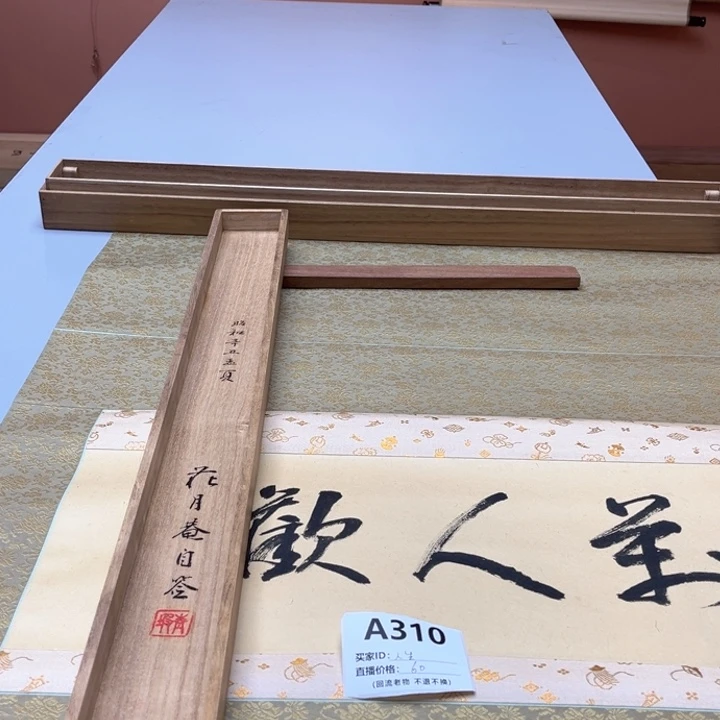 昭和辛丑孟夏
花月菴自签
歡人萬
A310
买家ID: 人生
直播价格: 60
(回流老物 不退不换)